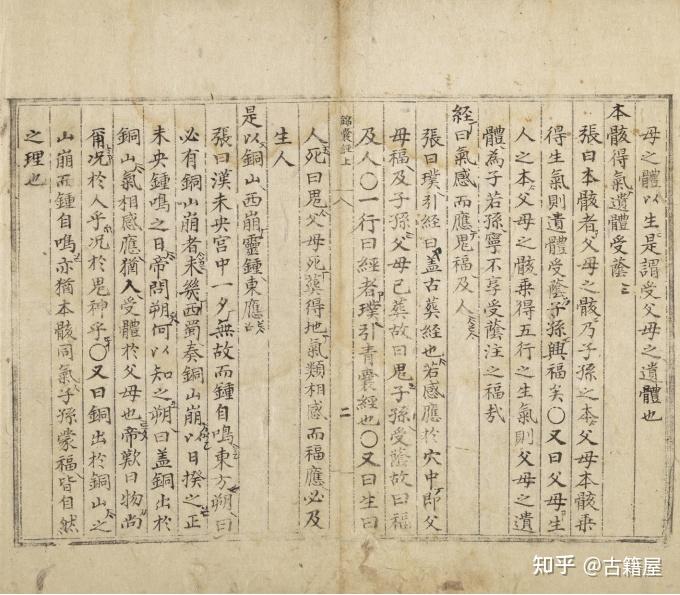 母之體以生是謂受父母之遺體也
本骸得氣遺體受蔭
張曰本骸者父母之骸乃子孫之本父母本骸乗
得生氣則遺體受蔭子孫興福矣○又曰父母生
人之本父母之骸乗得五行之生氣則父母之遺
體為子若孫寧不享受蔭注之福哉
経曰氣感而應鬼福及人
張曰璞引経曰盖古葬経也若感應於穴中即父
母福及子孫父母已葬故曰鬼子孫受蔭故曰福
及人○一行曰経者璞引青囊経也○又曰生曰
錦囊経上
二
人死曰鬼父母死葬得地氣類相感而福應必及
生人
是以銅山西崩靈鍾東應
張曰漢未央宮中一夕無故而鍾自鳴東方朔曰
必有銅山崩者未幾西蜀奏銅山崩以日揆之正
未央鍾鳴之日帝問朔何以知之朔曰盖銅出於
銅山氣相感應猶人受體於父母也帝歎曰物尚
爾况於人乎况於鬼神乎○又曰銅出於銅山之
山崩而鍾自鳴亦猶本骸同氣子孫蒙福皆自然
之理也
知乎 @古籍屋